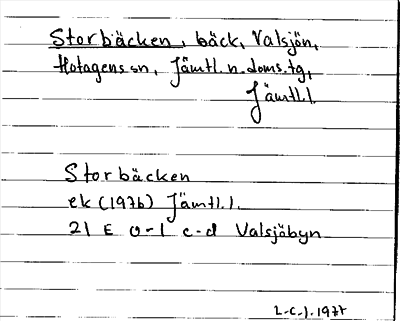 Storbäcken, bäck, Valsjön,
Hotagens sn, Jämtl. n. doms. tg,
Jämtl. l.
Storbäcken
ek (1976) Jämtl. l.
21 E 0-1 c-d Valsjöbyn